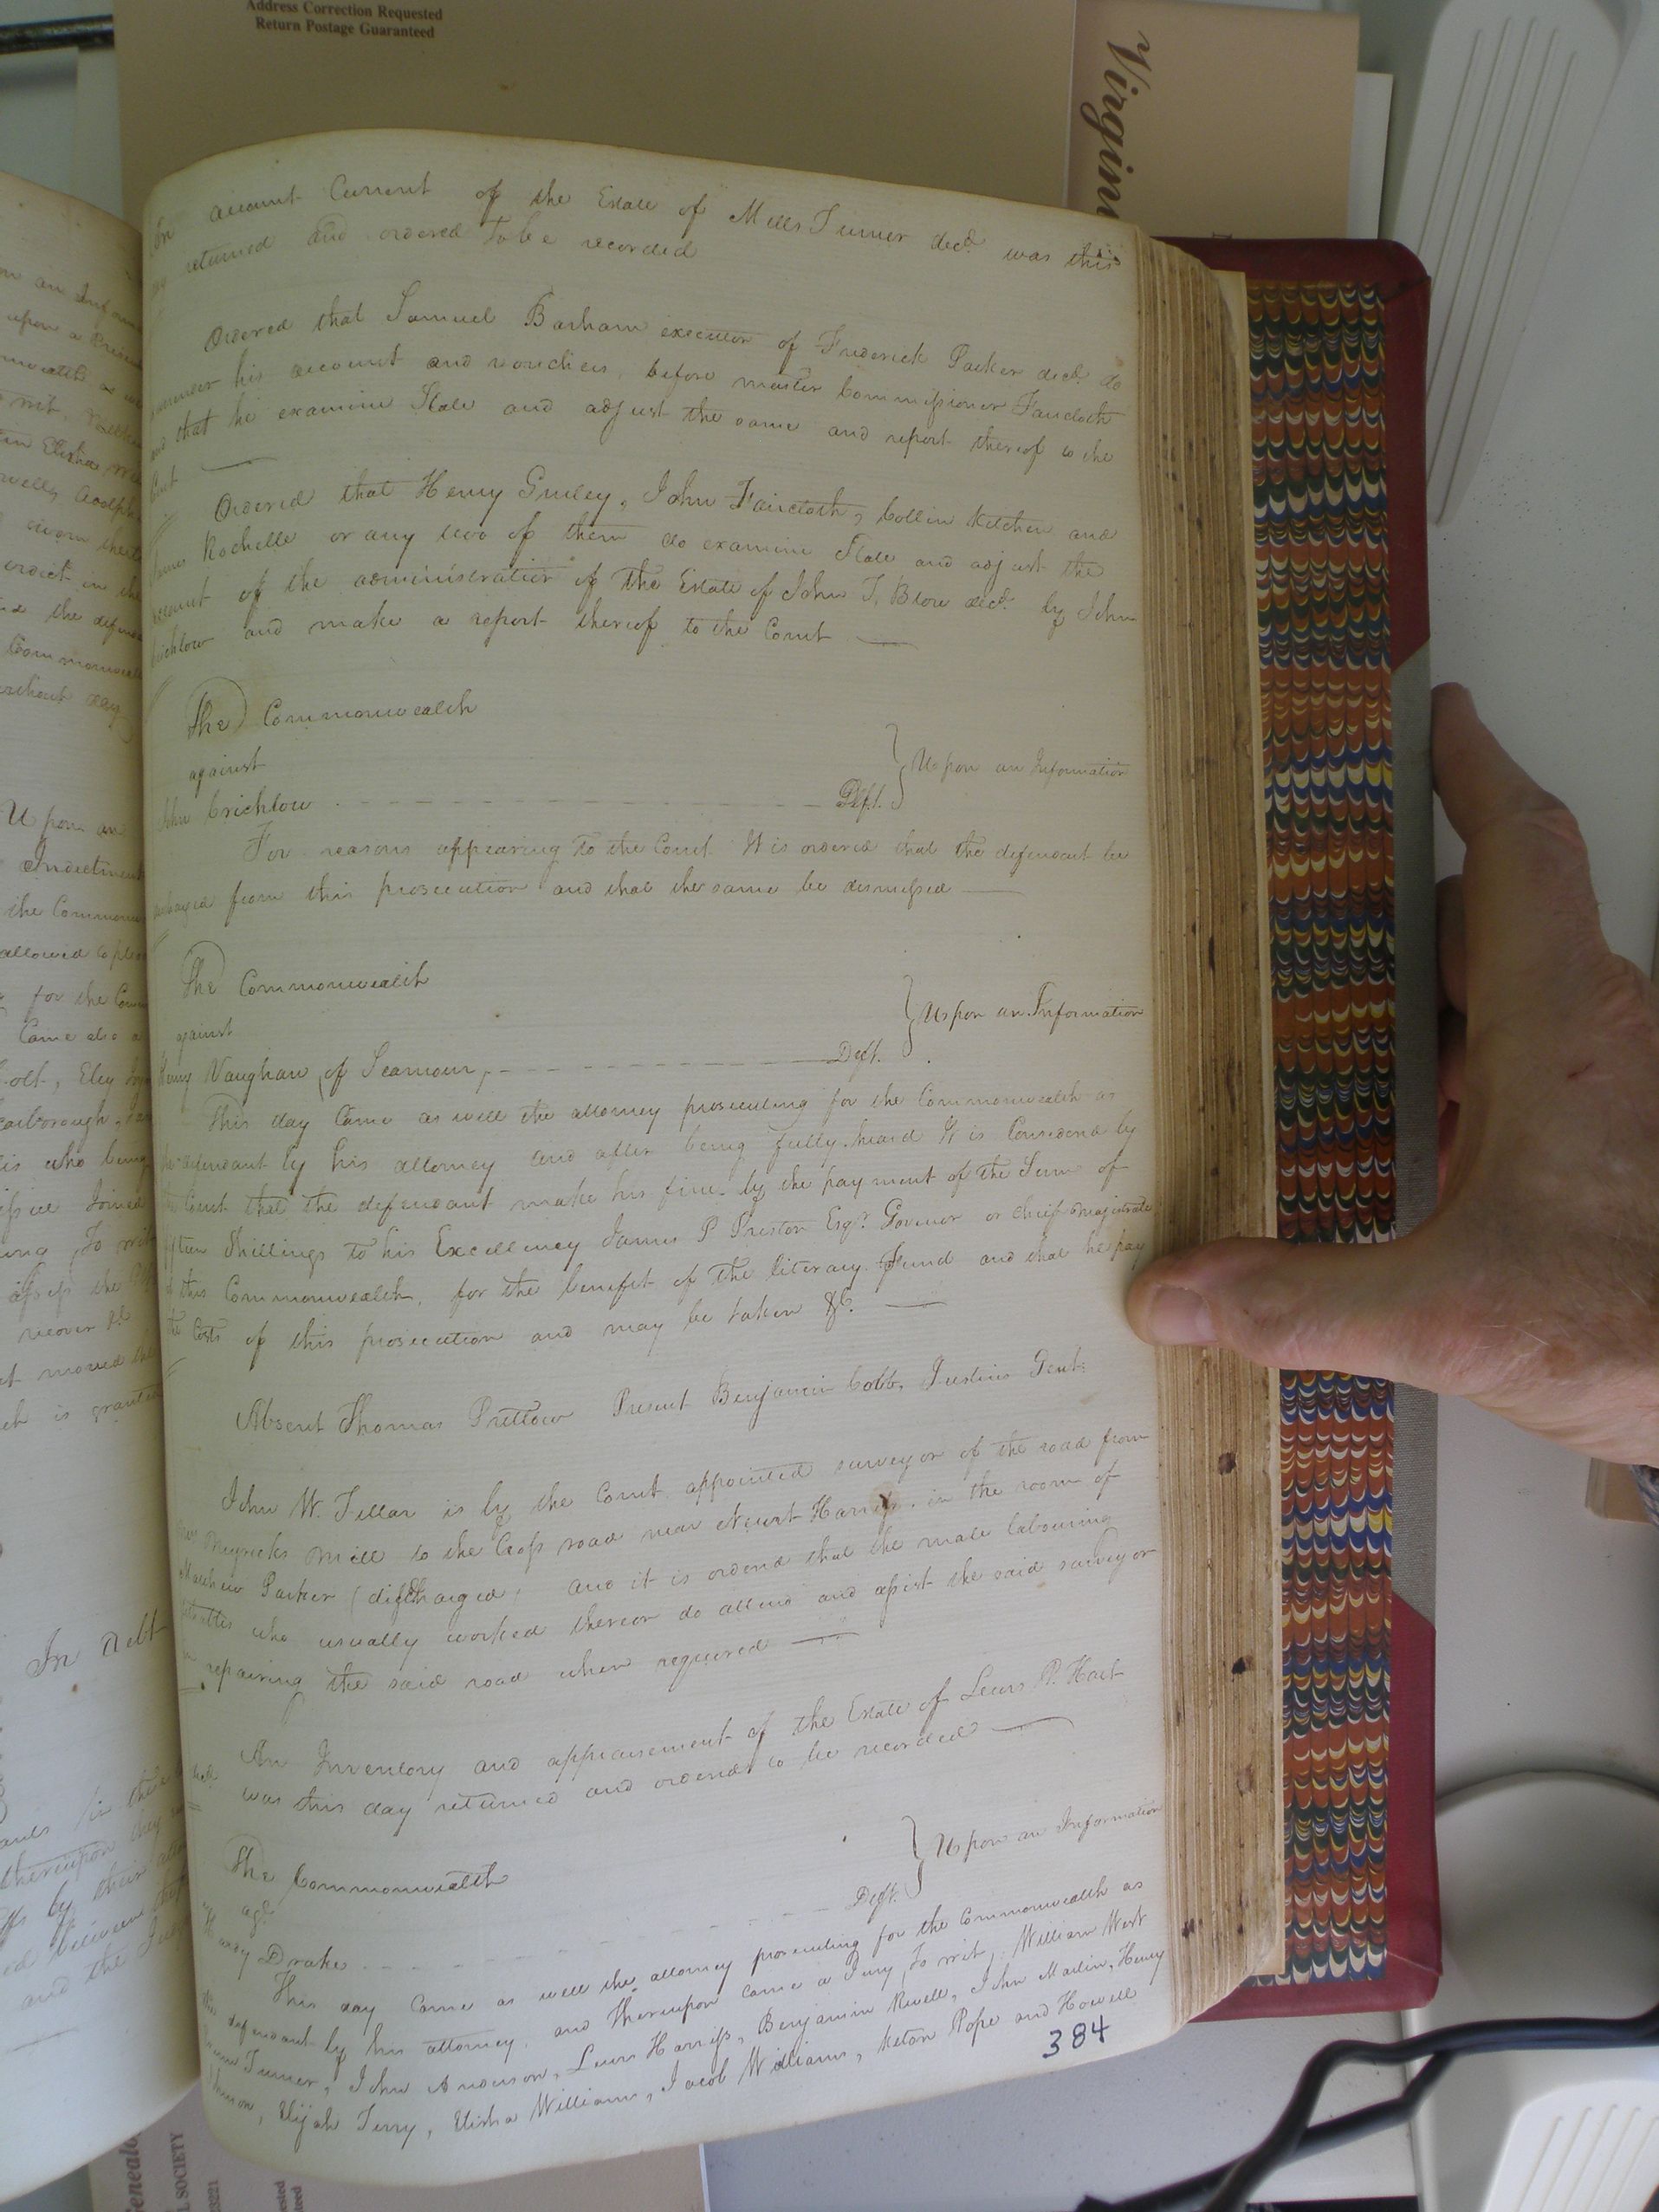 Address Correction Requested
Return Postage Guaranteed
Virgin
account Current of the Estate of Mills Turner decd. was this
returned and ordered to be recorded
Ordered that Samuel Barham executor of Frederick Parker decd. do
his account and vouchers, before master Commissioner Faircloth
and that he examine State and adjust the same and report thereof to the
Court
Ordered that Henry Gurley, John Faircloth, Collin Kitchen and
James Rochelle or any two of them do examine State and adjust the
account of the administration of the Estate of John T. Blow decd. by John
Crichlow and make a report thereof to the Court
The Commonwealth
against
John Crichlow Deft.
Upon an Information
For reasons appearing to the Court It is ordered that the defendant be
from this prosecution and that the same be dismissed
The Commonwealth
against
Henry Vaughan, of Seamour, Deft.
Upon an Information
This day Came as well the attorney prosecuting for the Commonwealth as
the defendant by his attorney and after being fully heard It is Considered by
the Court that the defendant make his fine by the payment of the Sum of
Shillings to his Excellency James P Preston Esqr. Govenor or chief magistrate
of this Commonwealth, for the benefit of the literary Fund and that he pay
the Costs of this prosecution and may be taken &C.
Absent Thomas Pretlow Present Benjamin Cobb, Justices Gent:
John W. Fellar is by the Court appointed surveyor of the road from
mill to the Cross road near Newit Harris, in the room of
Matthew Parker (discharged) and it is ordered that the male labouring
who usually worked thereon do attend and assist the said surveyor
in repairing the said road when required
An Inventory and appraisement of the Estate of Lewis P. Hart
was this day returned and ordered to be recorded
The Commonwealth
agt.
Hardy Drake Deft.
Upon an Information
This day Came as well the attorney prosecuting for the Commonwealth as
the defendant by his attorney, and thereupon Came a Jury, to wit, William West
Turner, John Anderson, Lewis Harriss, Benjamin Revell, John Marlin, Henry
Elijah Terry, Elisha Williams, Jacob Williams, Keton Pope and Howell
384
upon a
Elisha
sworn
in the
the
Commonwealth
without
Upon an
Indictment
the Common
allowed
for the
Came also
who being
Joined
recover
moved
is granted
In Debt
thereupon they
by their
and the
SOCIETY
23221